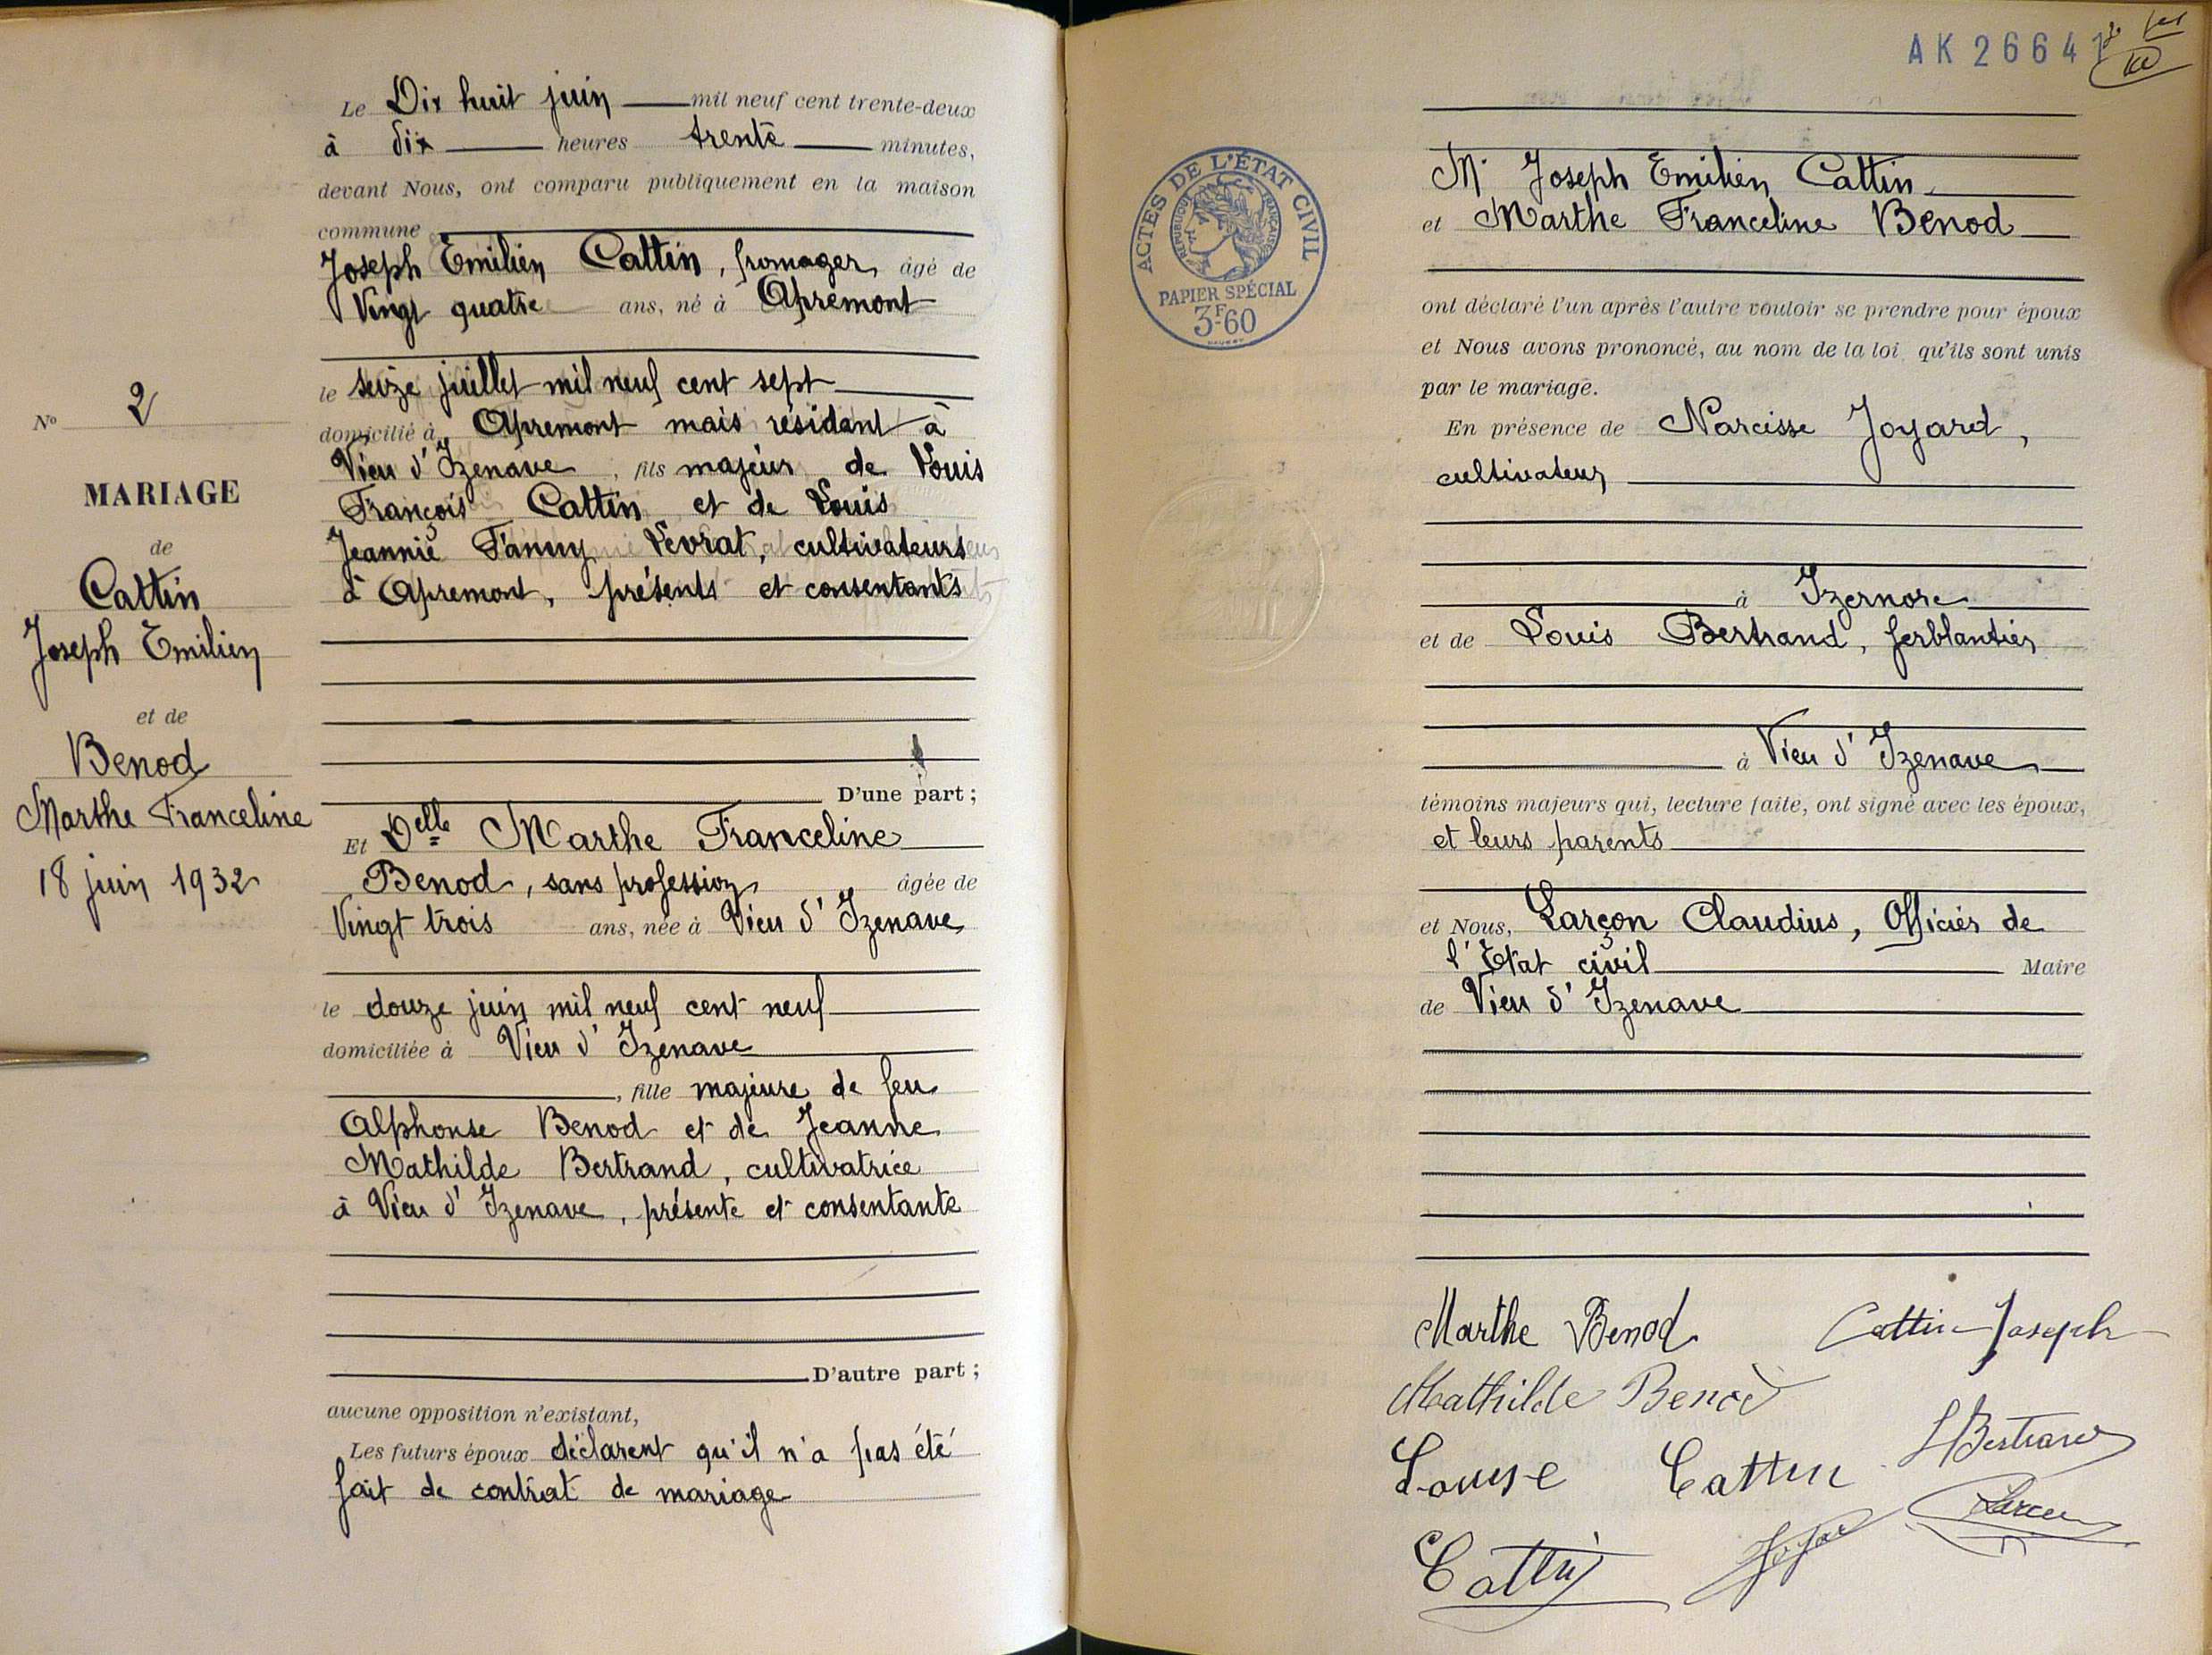 N° 2
MARIAGE
de
Cattin
Joseph Emilien
et de
Benod
Marthe Franceline
18 juin 1932
Le Dix huit juin mil neuf cent trente-deux
à dix heures trente minutes,
devant Nous, ont comparu publiquement en la maison
commune
Joseph Emilien Cattin, fromager, âgé de
Vingt quatre ans, né à Apremont
le seize juillet mil neuf cent sept
domicilié à Apremont mais résidant à
Vieu d'Izenave, fils majeur de Louis
François Cattin et de Louis
Jeannie Fanny Levrat, cultivateurs
à Apremont, présents et consentants
D'une part ;
Et Delle Marthe Franceline
Benod, sans profession âgée de
Vingt trois ans, née à Vieu d'Izenave
le douze juin mil neuf cent neuf
domiciliée à Vieu d'Izenave
, fille majeure de feu
Alphonse Benod et de Jeanne
Mathilde Bertrand, cultivatrice
à Vieu d'Izenave, présente et consentante
D'autre part ;
aucune opposition n'existant,
Les futurs époux déclarent qu'il n'a pas été
fait de contrat de mariage
AK 2664
ACTES DE L'ÉTAT CIVIL
RÉPUBLIQUE FRANÇAISE
PAPIER SPÉCIAL
3F60
Mr Joseph Emilien Cattin
et Marthe Franceline Benod
ont déclaré l'un après l'autre vouloir se prendre pour époux
et Nous avons prononcé, au nom de la loi, qu'ils sont unis
par le mariage.
En présence de Narcisse Joyard,
cultivateur
à Izernore
et de Louis Bertrand, ferblantier
à Vieu d'Izenave
témoins majeurs qui, lecture faite, ont signé avec les époux,
et leurs parents
et Nous, Larçon Claudius, Officier de
l'Etat civil Maire
de Vieu d'Izenave
Marthe Benod Cattin Joseph
Mathilde Benod
LBertrand
Louise Cattin
Larçon
Cattin